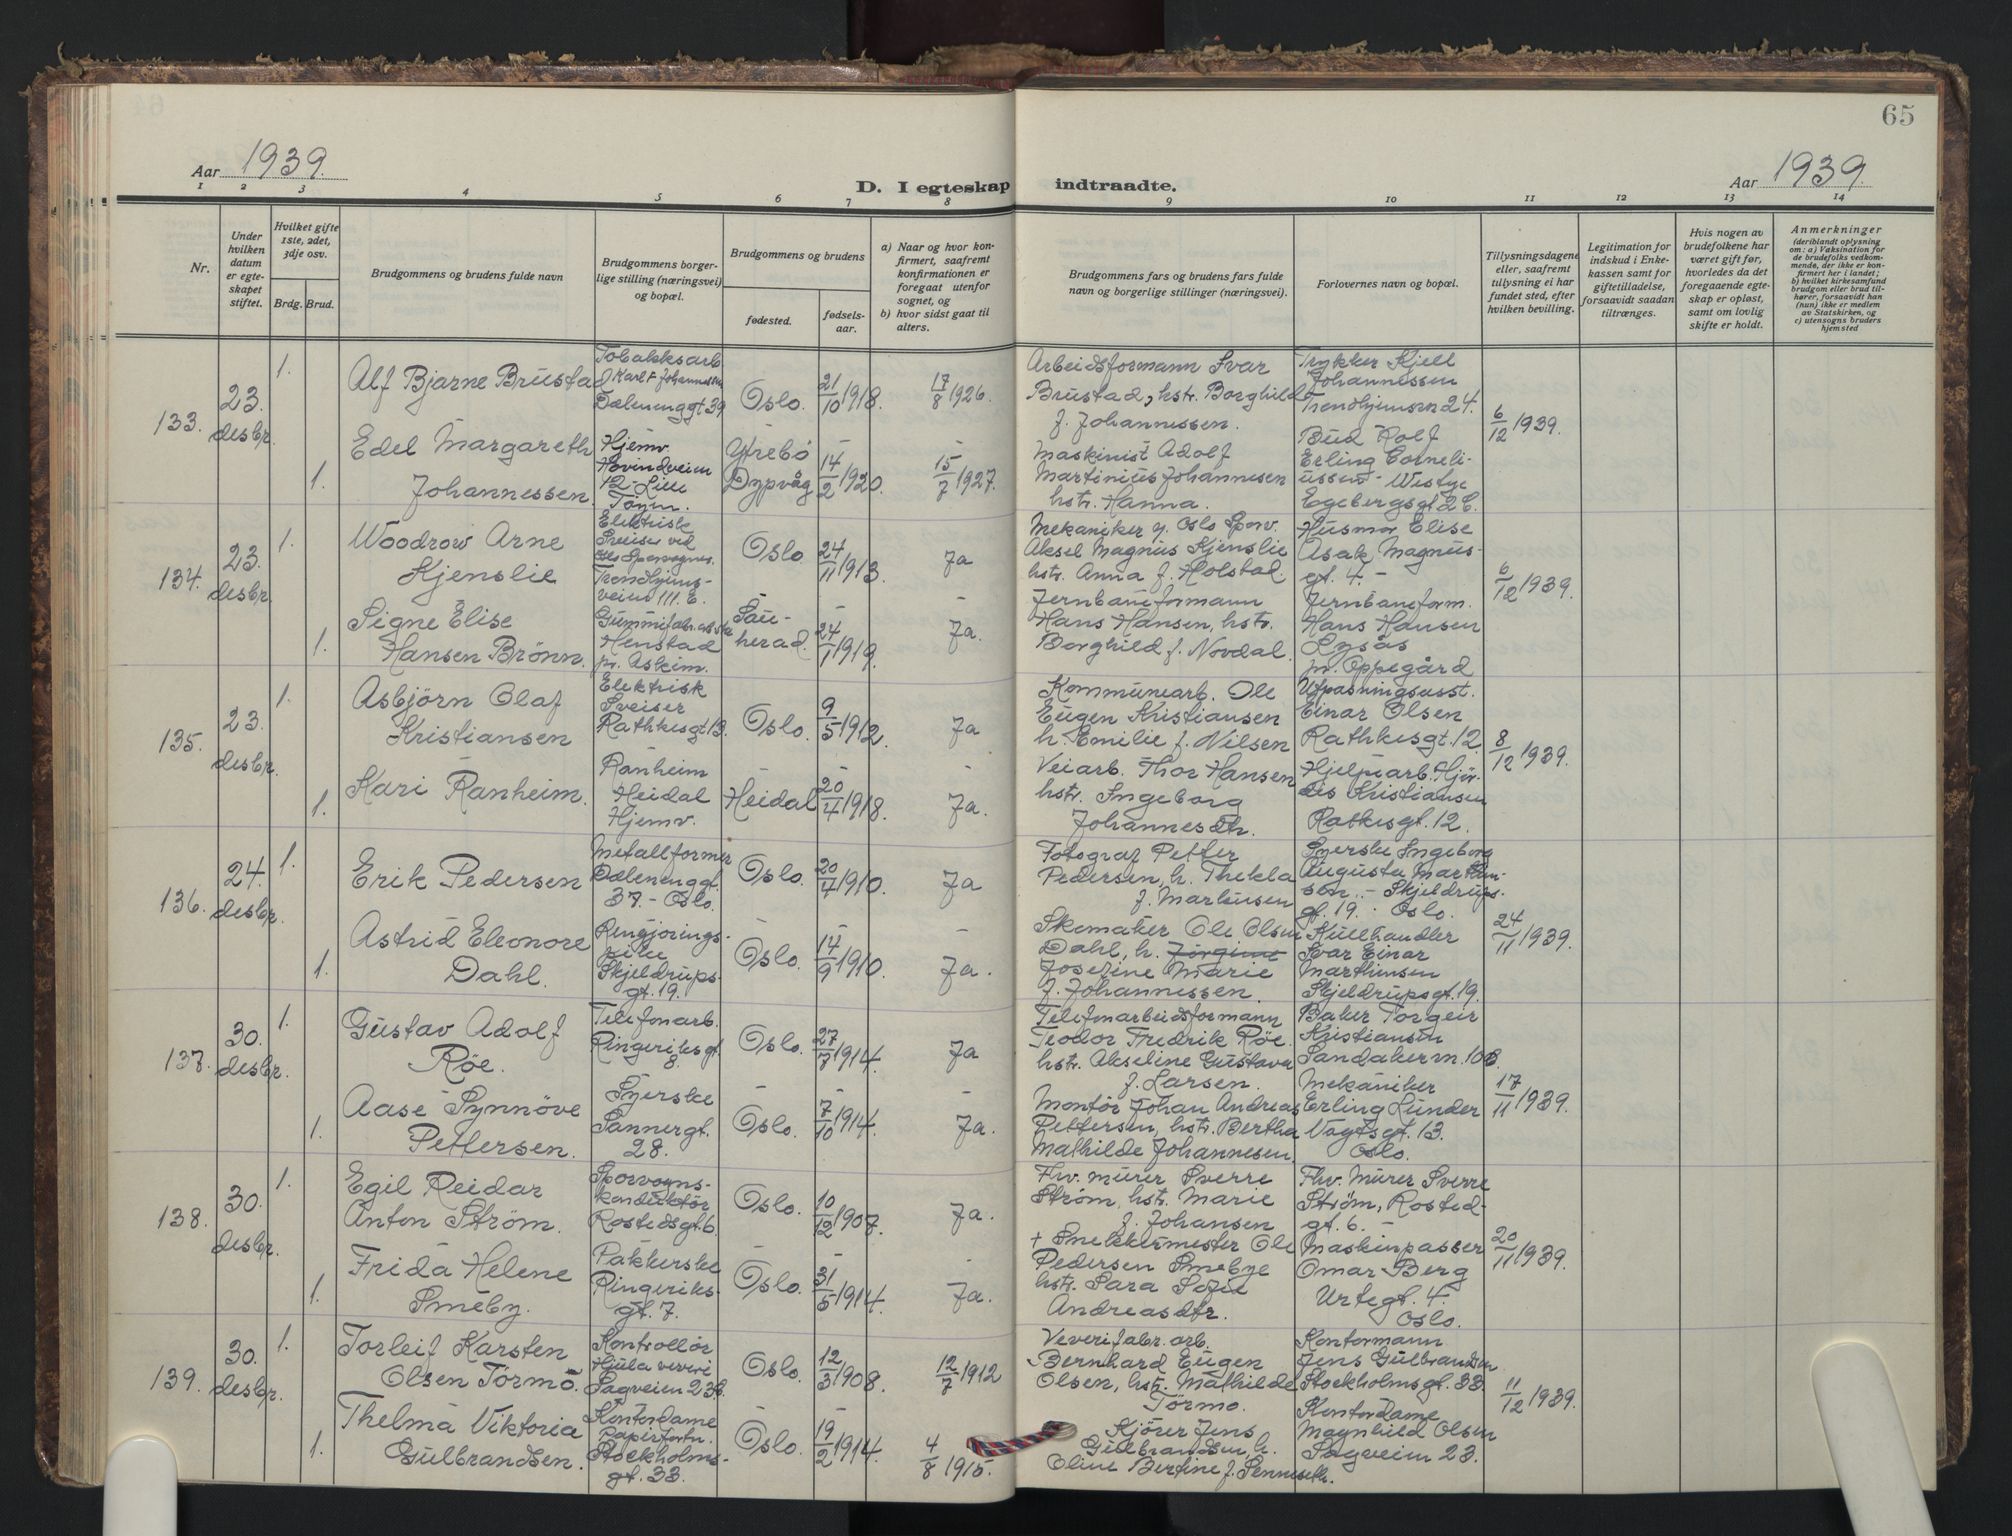 65
Aar 1939.
D. I egteskap indtraadte.
Aar 1939
1 2 3 4 5 6 7 8 9 10 11 12 13 14
Nr.
Under hvilken datum er egteskapet stiftet.
Hvilket gifte 1ste, 2det, 3dje osv.
Brdg. Brud.
Brudgommens og brudens fulde navn
Brudgommens borgerlige stilling (næringsvei) og bopæl.
Brudgommens og brudens
fødested.
fødselsaar.
a) Naar og hvor konfirmert, saafremt konfirmationen er foregaat utenfor sognet, og
b) hvor sidst gaat til alters.
Brudgommens fars og brudens fars fulde navn og borgerlige stillinger (næringsvei).
Forlovernes navn og bopæl.
Tillysningsdagene eller, saafremt tillysning ei har fundet sted, efter hvilken bevilling.
Legitimation for indskud i Enkekassen samt for giftetilladelse, forsaavidt saadan tiltrænges.
Hvis nogen av brudefolkene har været gift før, hvorledes da det foregaaende egteskap er opløst, samt om lovlig skifte er holdt.
Anmerkninger
(deriblandt oplysning om: a) Vaksination for de brudefolks vedkommende, der ikke er konfirmert her i landet; b) hvilket kirkesamfund brudgom eller brud tilhører, forsaavidt han (hun) ikke er medlem av Statskirken, og c) utensogns bruders hjemsted
133. 23. desbr.
1. Alf Bjarne Brustad
Tobakksarb
Karl F Johannessen
Dælenenggt 39
Oslo. 21/10 1918. 17/8 1926.
Arbeidsformann Ivar
Brustad, hstr. Borghild
f. Johannessen.
Trykker Kjell
Johannessen
Trondhjemsvn 24.
6/12 1939.
1. Edel Margareth
Johannessen
Hjemv.
Hovindveien
12 - Lille
Töyen.
Ytrebö
Dypvåg 14/2 1920. 15/7 1927.
Maskinist Adolf
Martinius Johannesen
hstr. Hanna.
Bud Rolf
Erling Corneliussen - Westye
Egebergsgt 2 C.
134. 23. desbr.
1. Woodrow Arne
Kjenslie
Elektriske
Sveiser ved
Oslo Sporvogner.
Trondhjemsveien 111. E.
Oslo 24/11 1913. Ja
Mekaniker v. Oslo Sporv.
Aksel Magnus Kjenslie
hstr. Anna f. Holstad.
Husmor Elise
Asak Magnusgt. 4. -
6/12 1939.
1. Signe Elise
Hansen Brönn.
Henstad
pr. Askim.
Sauherad. 24/1 1919. Ja.
Jernbaneformann
Hans Hansen, hstr.
Borghild f. Novdal.
Jernbaneform.
Hans Hansen
Lysås
pr. Oppegård
135. 23. desbr.
1. Asbjörn Olaf
Kristiansen
Elektrisk
Sveiser
Rathkesgt 13.
Oslo. 9/5 1912. Ja
Kommunearb. Ole
Eugen Kristiansen
h. Emilie f. Nilsen
Utpasningsasst.
Einar Olsen
Rathkesgt. 12.
8/12 1939.
1. Kari Ranheim.
Ranheim
Heidal
Hjemv.
Heidal 20/4 1918. Ja.
Veiarb. Thor Hansen
hstr. Ingeborg
Johannesdtr.
Hjelpearb. Hjördis Kristiansen
Ratkesgt. 12.
136. 24. desbr.
1. Erik Pedersen
Metallformer
Dælenenggt.
37. - Oslo.
Oslo. 20/4 1910. Ja
Fotograf Petter
Pedersen, h. Thekla
f. Markussen
Syerske Ingeborg
Augusta Marthinsen. - Skjeldrupsgt. 19. - Oslo.
24/11 1939.
1. Astrid Eleonore
Dahl.
Rengjöringspike
Skjeldrupsgt. 19.
Oslo. 14/9 1910. Ja.
Skomaker Ole Olsen
Dahl, h. Jörgine
Josefine Marie
f. Johannessen.
Kullhandler
Ivar Einar
Marthinsen
Skjeldrupsgt. 19.
137. 30. desbr.
1. Gustav Adolf
Röe.
Telefonarb.
Ringeriksgt.
8.
Oslo. 27/7 1914. Ja
Telefonarbeidsformann
Teodor Fredrik Röe.
hstr. Akseline Gustava
f. Larsen.
Baker Torgeir
Kristiansen
Sandakervn. 10 B.
17/11 1939.
1. Aase Synnöve
Pettersen.
Syerske
Sannergt.
28.
Oslo. 7/10 1914. Ja.
Montör Johan Andreas
Pettersen, hstr. Bertha
Mathilde Johannesen.
Mekaniker
Erling Lunder
Vogtsgt. 13.
Oslo.
138. 30. desbr.
1. Egil Reidar
Anton Ström.
Sporvognskonduktör
Rostedsgt. 6.
Oslo. 10/12 1907. Ja.
Fhv. murer Sverre
Ström, hstr. Marie
f. Johansen
Fhv. Murer Sverre
Ström, Rostedgt. 6. -
20/11 1939.
1. Frida Helene
Smeby.
Pakkerske
Ringeriksgt. 7.
Oslo. 31/5 1914. Ja.
+ Snekkermester Ole
Pedersen Smebye
hstr. Sara Sofie
Andreasdtr.
Maskinpasser
Omar Berg
Urtegt. 4.
Oslo.
139. 30. desbr.
1. Torleif Karsten
Olsen Törmo.
Kontrollör
Hjula veveri
Sagveien 23 B.
Oslo. 12/3 1908. 12/7 1912
Veverifabr. arb.
Bernhard Eugen
Olsen, hstr. Mathilde
Törmo.
Kontormann
Jens Gulbrandsen
Stockholmsgt. 33.
11/12 1939.
1. Thelma Viktoria
Gulbrandsen.
Kontordame
Papirforn.
Stockholmsgt. 33.
Oslo. 19/2 1914. 4/8 1915.
Kjörer Jens
Gulbrandsen h.
Oline Bertine f. Senneseth.
Kontordame
Magnhild Olsen
Sagveien 23.